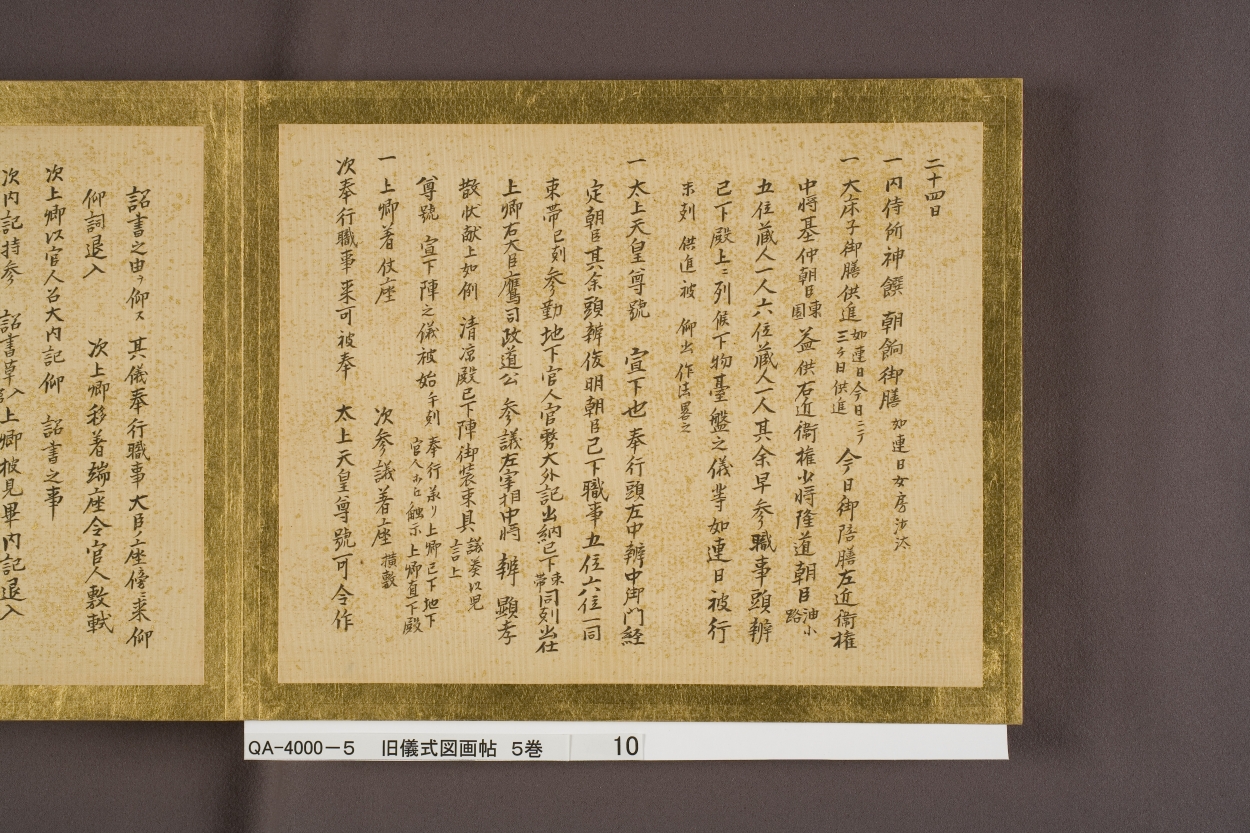 二十四日
一 内侍所神饌 朝餉御膳 如連日女房沙汰
一 大床子御膳供進 如連日今日ニテ三ケ日供進 今日御陪膳左近衛権
中将基仲朝臣 東園 益供右近衛権少将隆道朝臣 油小路
五位蔵人一人六位蔵人一人其余早参職事頭辨
已下殿上ニ列候下物臺盤之儀等如連日被行
未刻 供進被 仰出 作法畧之
一 太上天皇尊號 宣下也奉行頭左中辨中御門経
定朝臣其余頭辨俊明朝臣已下職事五位六位一同
束帯巳刻参勤地下官人官務大外記出納已下束帯同刻出仕
上卿右大臣鷹司政道公 参議左宰相中将 辨 顕孝
散状献上如例 清凉殿已下陣御装束具 議奏以児言上
尊號 宣下陣之儀被始 午刻 奉行承リ上卿已下地下官人等江触示上卿直下殿
一 上卿着仗座 次参議着座 横敷
次奉行職事来可被奉 太上天皇尊號可令作
詔書之由ヲ仰ス 其儀奉行職事大臣ノ座傍ニ来仰
仰詞退入 次上卿移着端座令官人敷軾
次上卿以官人召大内記仰 詔書之事
次内記持参 詔書草 上卿披見畢内記退入
QA-4000-5 旧儀式図画帖 5巻 10